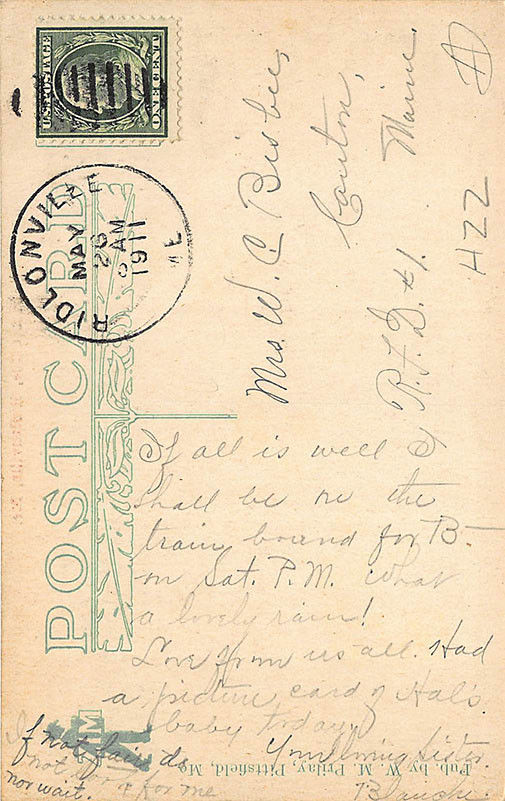 POST CARD
U.S. POSTAGE
ONE CENT
RIDLONVILLE
MAY
26
AM
1911
ME
Mrs. W. C. Bisbee,
Canton,
Maine.
R.F.D. #1.
HZZ
If all is well I
shall be on the
train bound for B-
on Sat. P.M. What
a lovely rain!
Love from us all. Had
a picture card of Hal's
baby today.
Your loving sister
Blanche.
If not fair do
not for me
nor wait.
Pub. by W. M. Prilay, Pittsfield, Me.